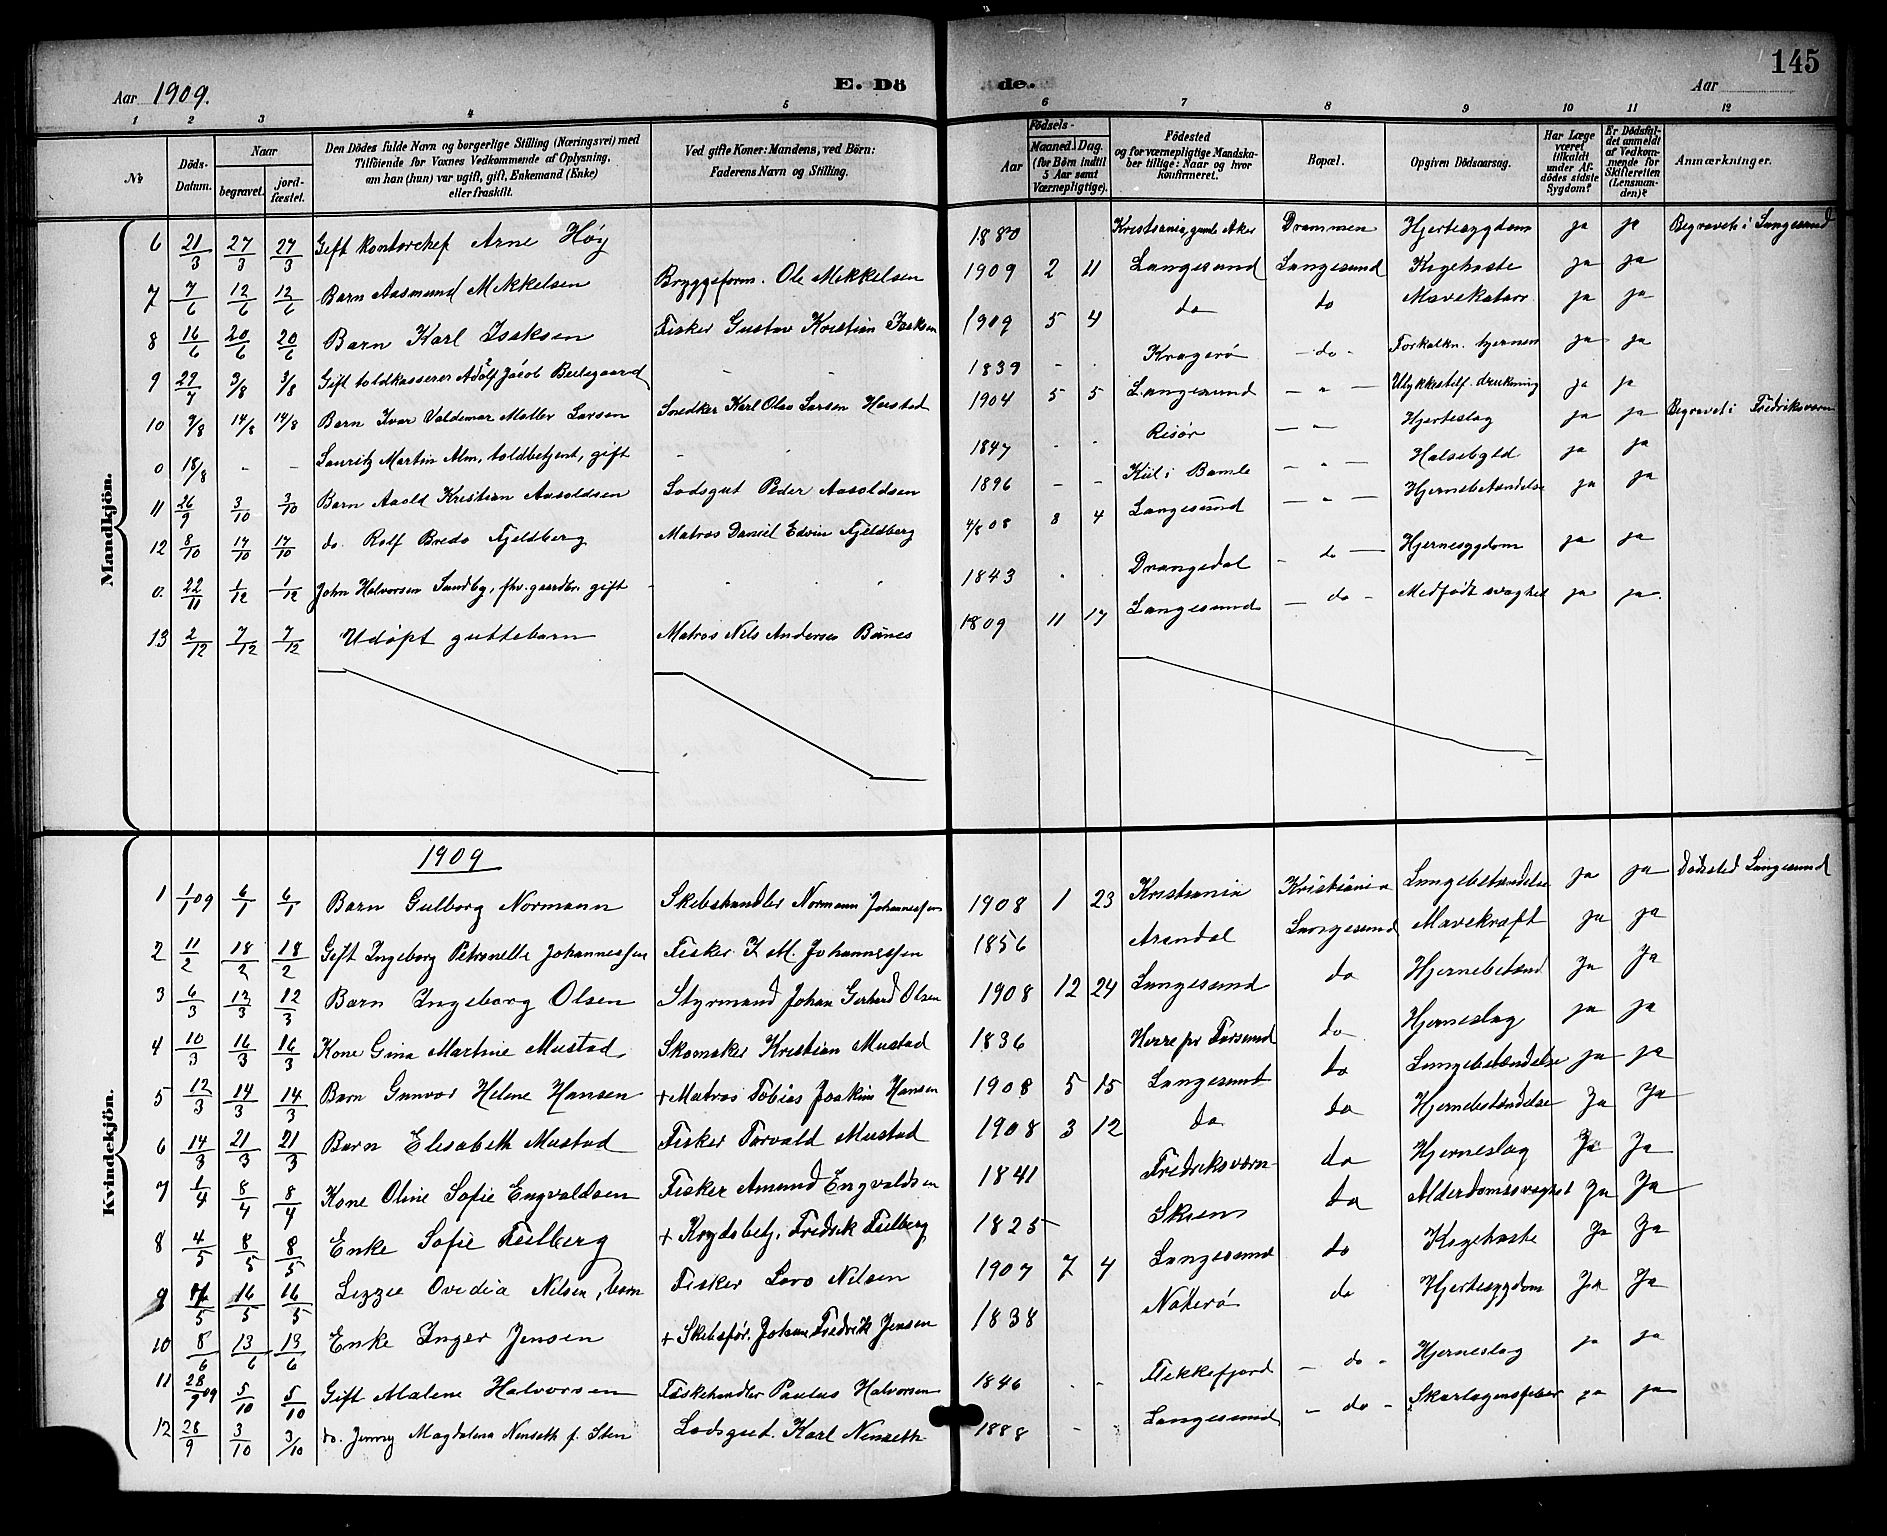 145
Aar 1909. E. Dö de. Aar
1 2 3 4 5 6 7 8 9 10 11 12
No Döds-Datum. Naar begravet. jordfæstet. Den Dödes fulde Navn og borgerlige Stilling (Næringsvei) med Tilföiende for Voxnes Vedkommende af Oplysning, om han (hun) var ugift, gift, Enkemand (Enke) eller fraskilt. Ved gifte Koner: Mandens, ved Börn: Faderens Navn og Stilling. Födsels- Aar Maaned. Dag. (for Börn indtil 5 Aar samt Værnepligtige). Födested og for værnepligtige Mandskaber tillige: Naar og hvor konfirmeret. Bopæl. Opgiven Dödsaarsag. Har Læge været tilkaldt under Afdödes sidste Sygdom? Er Dödsfaldet anmeldt af Vedkommende for Skifteretten (Lensmanden)? Anmærkninger.
Mandkjön.
6 21/3 27/3 27/3 Gift Kontorchef Arne Höy 1880 Kristiania, gamle Aker Drammen Hjertesygdom ja ja Begravet i Langesund
7 7/6 12/6 12/6 Barn Aasmund Mikkelsen Bryggeform. Ole Mikkelsen 1909 2 11 Langesund Langesund Kighoste ja ja
8 16/6 20/6 20/6 Barn Karl Isaksen Fisker Gustav Kristian Isaksen 1909 5 4 do do Mavekatarr ja ja
9 29/7 3/8 3/8 Gift toldkasserer Adolf Jacob 1839 - . Kragerö - do - Forkalkn. hjernen ja ja
10 9/8 14/8 14/8 Barn Ivar Valdemar Möller Larsen Snedker Karl Olav Larsen 1904 5 5 Langesund - " - Ulykkestilf. drukning ja ja
0 18/8 - - Lauritz Martin Alm, toldbetjent, gift - 1847 - - Risör - " - Hjerteslag ja ja Begravet i Fredriksværn
11 26/9 3/10 3/10 Barn Aaold Kristian Aasoldsen Lodsgut Peder Aasoldsen 1896 - - Kiil i Bamle - " - Halsebyld ja ja
12 8/10 14/10 14/10 do. Rolf Bredo Fjeldberg Matros Daniel Edvin Fjeldberg 4/8 08 8 4 Langesund - " - Hjernebetændelse ja ja
0. 22/11 1/12 1/12 John Halvorsen Sundby, fhv. gaardbr. gift - 1843 . . Drangedal - do - Hjernesygdom ja ja
13 2/12 7/12 7/12 Udöpt guttebarn Matros Nils Andersen 1809 11 17 Langesund - do - Medfödt svaghet ja ja.
Kvindekjön.
1909
1 1/1 09 6/1 6/1 Barn Gulborg Normann Skibshandler Normann Johannessen 1908 1 23 Kristiania Kristiania Lungebetændelse ja ja Dödssted Langesund
2 11/2 18/2 18/2 Gift Ingeborg Petronelle Johannessen Fisker I. M. Johannessen 1856 Arendal Langesund Mavekræft ja ja
3 6/3 12/3 12/3 Barn Ingeborg Olsen Styrmand Johan Gerhard Olsen 1908 12 24 Langesund do Hjernebetænd ja Ja
4 10/3 16/3 16/3 Kone Gina Martine Mustad Skomaker Kristian Mustad 1836 Herre pr Farsund do Hjerneslag ja ja
5 12/3 14/3 14/3 Barn Gunvor Helene Hansen + Matros Tobias Joakim Hansen 1908 5 15 Langesund do Lungebetændelse ja ja
6 14/3 21/3 21/3 Barn Elisabeth Mustad Fisker Torvald Mustad 1908 3 12 do do Hjernebetændelse Ja Ja
7 1/4 8/4 8/4 Kone Oline Sofie Engvaldsen Fisker Amund Engvaldsen 1841 Fredriksværn do Hjerneslag Ja Ja
8 4/5 8/5 8/5 Enke Sofie Feilberg + Krydsbetj. Fredrik Feilberg 1825 Skien do Alderdomssvaghet Ja Ja
9 11/5 16/5 16/5 Lizzie Ovidia Nilsen, barn Fisker Lars Nilsen 1907 7 4 Langesund do Kighoste Ja Ja
10 8/6 13/6 13/6 Enke Inger Jensen + Skibsför. Johan Fredrik Jensen 1838 Nöterö do Hjertesygdom Ja Ja
11 28/9 09 5/10 5/10 Gift Malene Halvorsen Fiskehandler Paulus Halvorsen 1846 - - Flekkefjord - do - Hjerneslag ja ja
12 28/9 3/10 3/10 do. Jenny Magdalena Nenseth f. Sten Lodsgut. Karl Nenseth 1888 - Langesund - do - Skarlagensfeber ja ja